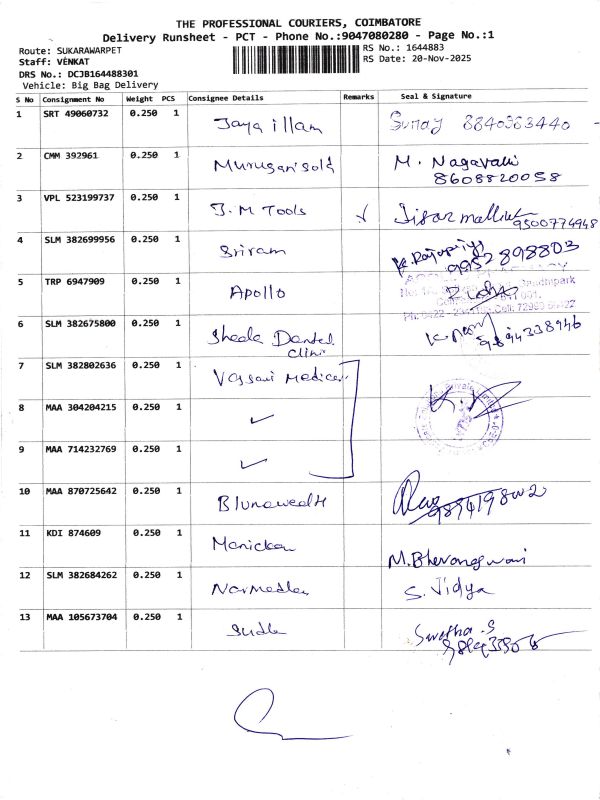 THE PROFESSIONAL COURIERS, COIMBATORE
Delivery Runsheet - PCT - Phone No.:9047080280 - Page No.:1
Route: SUKARAWARPET
RS No.: 1644883
Staff: VENKAT
RS Date: 20-Nov-2025
DRS No.: DCJB164488301
Vehicle: Big Bag Delivery
S No Consignment No Weight PCS Consignee Details Remarks Seal & Signature
1 SRT 49060732 0.250 1 Jaya illam 8840963440
2 CMM 392961 0.250 1 M. Nagavalli
8608820058
3 VPL 523199737 0.250 1 J.M Tools
9500774948
4 SLM 382699956 0.250 1 Sriram
9952898803
5 TRP 6947909 0.250 1 Apollo
6 SLM 382675800 0.250 1 Dental
clini
9894338946
7 SLM 382802636 0.250 1 Vassavi Medical
8 MAA 304204215 0.250 1 ✓
9 MAA 714232769 0.250 1 ✓
10 MAA 870725642 0.250 1
11 KDI 874609 0.250 1
12 SLM 382684262 0.250 1 S. Vidya
13 MAA 105673704 0.250 1 Swetha.S